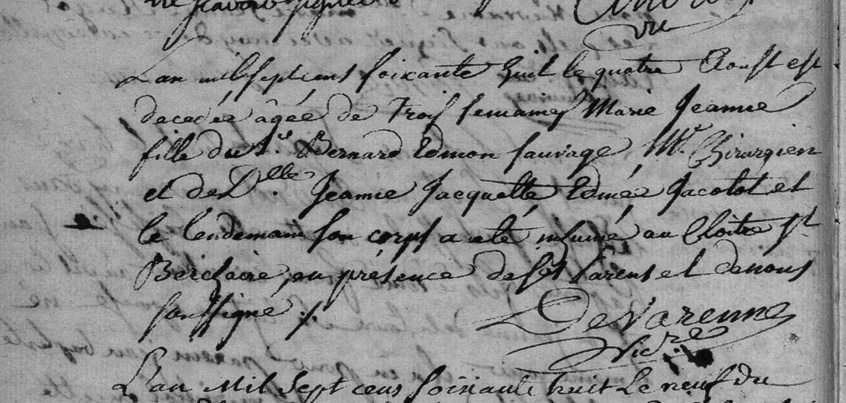 ne savoir signer
vic
L'an mil sept cens soixante huit le quatre Aoust est
decedée âgée de trois semaines Marie Jeanne
fille du Sr. Bernard Edmon Sauvage, Mtre. Chirurgien
et de Delle. Jeanne Jacquette Edmée Jacotot et
le lendemain son corps a eté inhumé au Cloitre St.
Berchaire, en présence de ses parens et de nous
soussigné ./.
De Varenne
Vicre.
L'an Mil Sept cens soixante huit Le neuf du